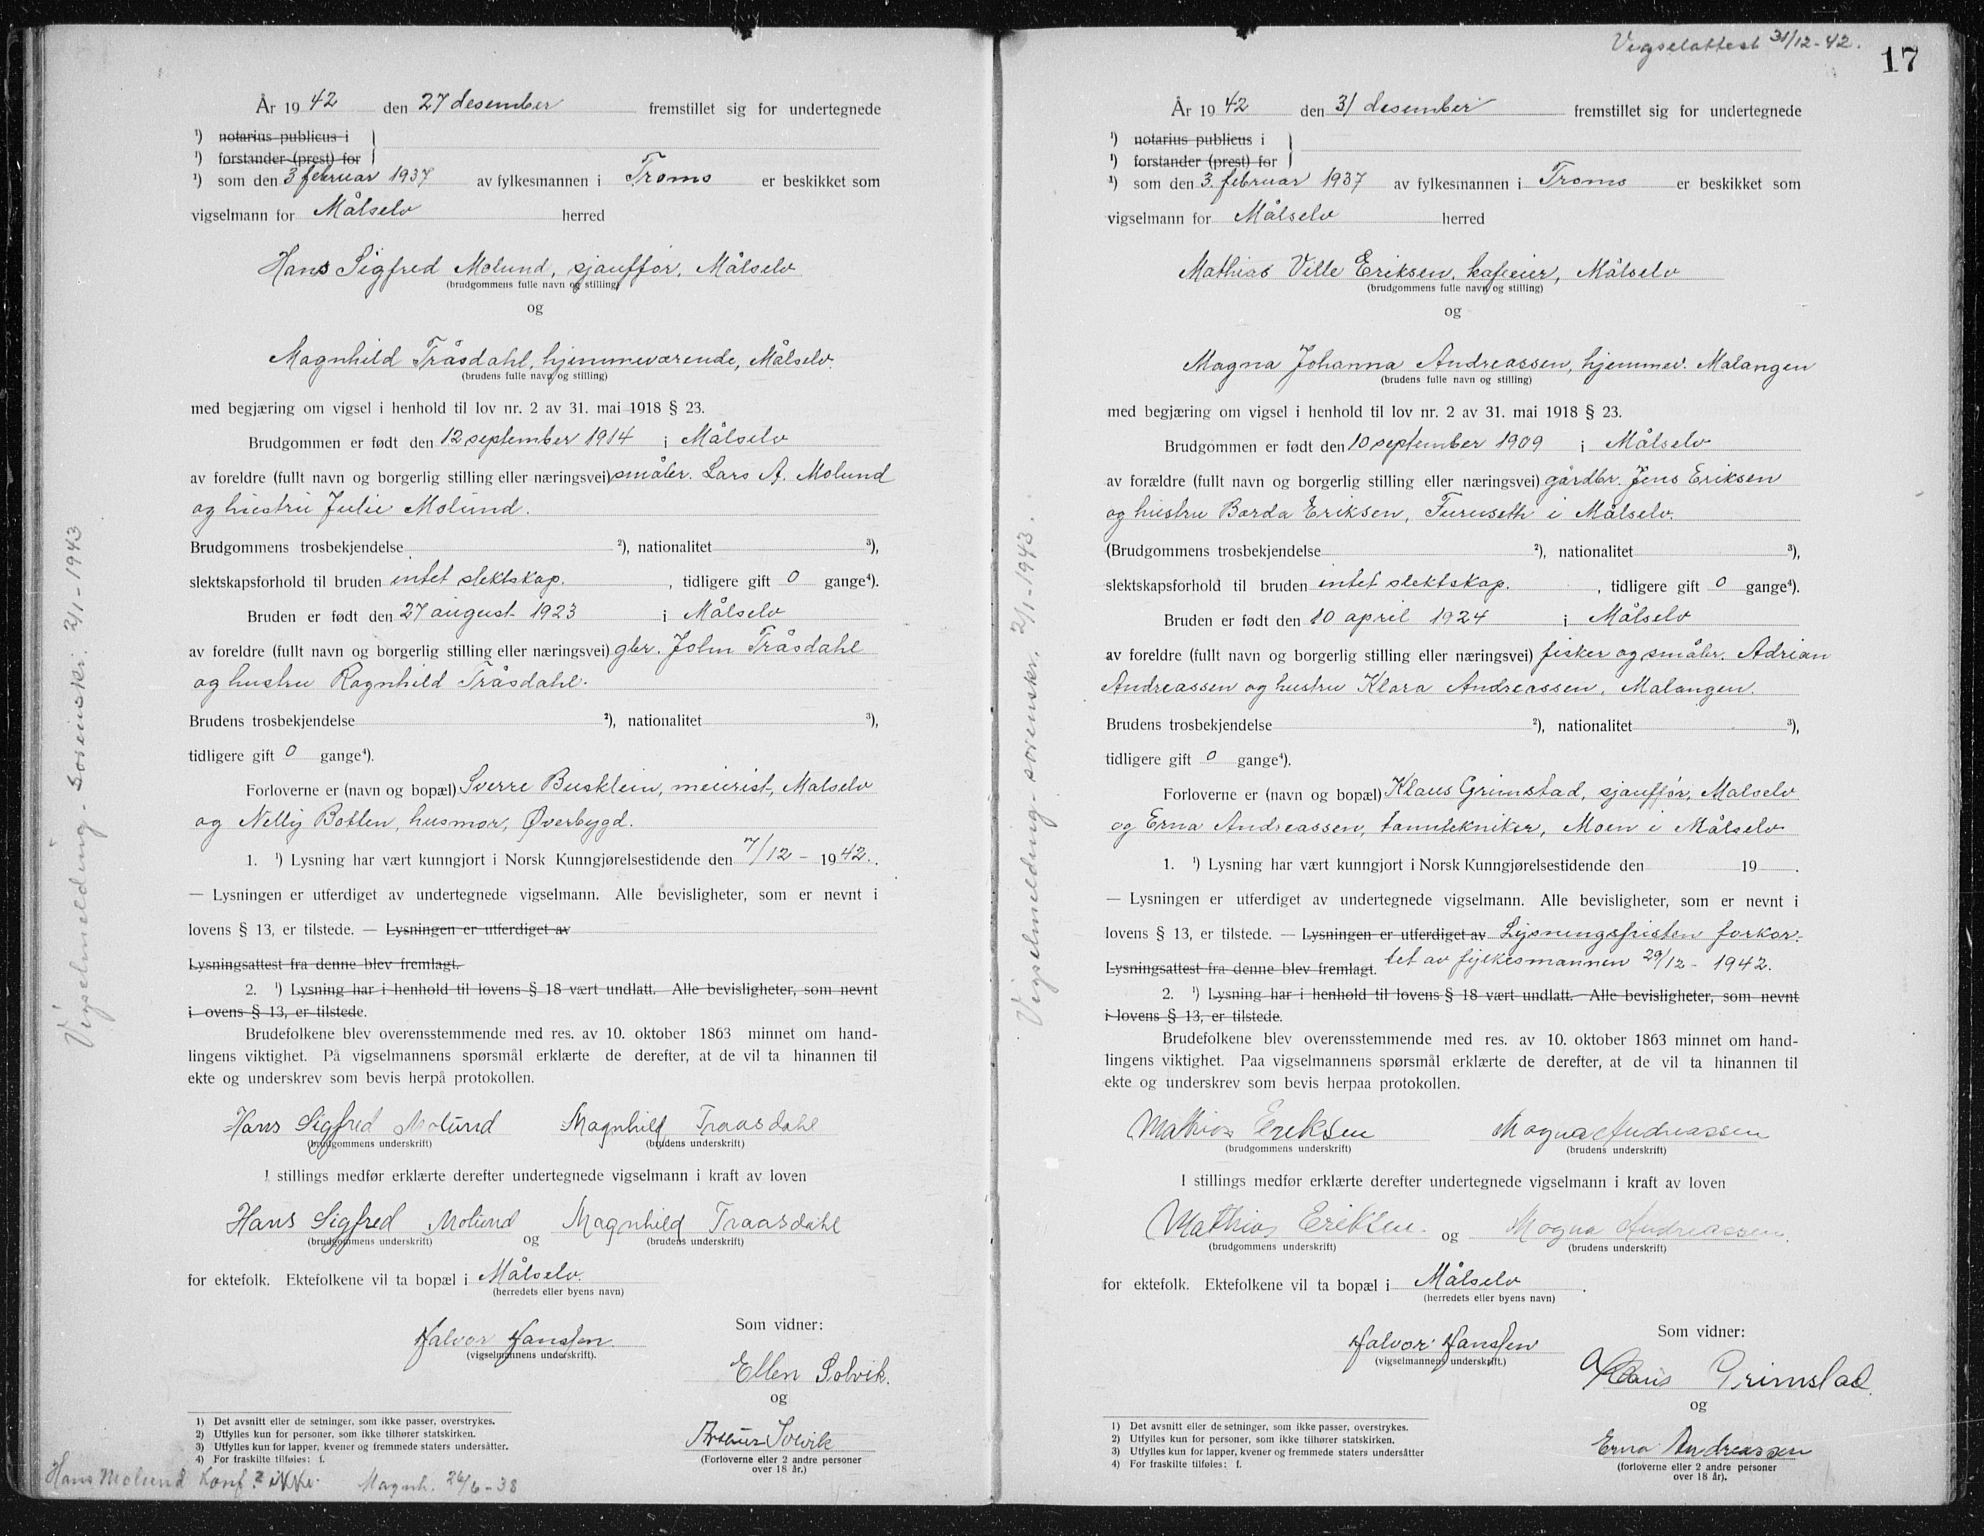 År 1942 den 27 desember fremstillet sig for undertegnede
¹) notarius publicus i
¹) forstander (prest) for
¹) som den 3 februar 1937 av fylkesmannen i Troms er beskikket som
vigselmann for Målselv herred
Hans Sigfred Molund, sjauffør, Målselv
(brudgommens fulle navn og stilling)
og
Magnhild Tråsdahl, hjemmeværende, Målselv.
(brudens fulle navn og stilling)
med begjæring om vigsel i henhold til lov nr. 2 av 31. mai 1918 § 23.
Brudgommen er født den 12 september 1914 i Målselv
av foreldre (fullt navn og borgerlig stilling eller næringsvei) småbr. Lars A. Molund
og hustru Julie Molund.
Brudgommens trosbekjendelse ²), nationalitet ³),
slektskapsforhold til bruden intet slektskap. , tidligere gift 0 gange⁴).
Bruden er født den 27 august 1923 i Målselv
av foreldre (fullt navn og borgerlig stilling eller næringsvei) gbr. John Tråsdahl
og hustru Ragnhild Tråsdahl.
Brudens trosbekjendelse ²), nationalitet ³),
tidligere gift 0 gange⁴).
Forloverne er (navn og bopæl) Sverre Busklein, meierist, Målselv
og Nelly Botlen, husmor, Øverbygd.
1. ¹) Lysning har vært kunngjort i Norsk Kunngjørelsestidende den 7/12 - 1942.
— Lysningen er utferdiget av undertegnede vigselmann. Alle bevisligheter, som er nevnt i
lovens § 13, er tilstede. — Lysningen er utferdiget av
Lysningsattest fra denne blev fremlagt.
2. ¹) Lysning har i henhold til lovens § 18 vært undlatt. Alle bevisligheter, som nevnt
i ovens § 13, er tilstede.
Brudefolkene blev overensstemmende med res. av 10. oktober 1863 minnet om hand-
lingens viktighet. På vigselmannens spørsmål erklærte de derefter, at de vil ta hinannen til
ekte og underskrev som bevis herpå protokollen.
Hans Sigfred Molund Magnhild Traasdahl
(brudgommens underskrift) (brudens underskrift)
I stillings medfør erklærte derefter undertegnede vigselmann i kraft av loven
Hans Sigfred Molund og Magnhild Traasdahl
(brudgommens underskrift) (brudens underskrift)
for ektefolk. Ektefolkene vil ta bopæl i Målselv.
(herredets eller byens navn)
Som vidner:
Halvor Hanssen
(vigselmannens underskrift).
Ellen Solvik.
og
Arthur Solvik
(Forloverne eller 2 andre personer
over 18 år.)
1) Det avsnitt eller de setninger, som ikke passer, overstrykes.
2) Utfylles kun for personer, som ikke tilhører statskirken.
3) Utfylles kun for lapper, kvener og fremmede staters undersåtter.
4) For fraskilte tilføies: f.
Hans Molund Konf. ? ikke. Magnh. 26/6-38
Vigselmelding - Sorenskr. 2/1-1943
Vigselattest 31/12-42.
17
År 1942 den 31 desember fremstillet sig for undertegnede
¹) notarius publicus i
¹) forstander (prest) for
¹) som den 3. februar 1937 av fylkesmannen i Troms er beskikket som
vigselmann for Målselv herred
Mathias Ville Eriksen, kafeeier, Målselv
(brudgommens fulle navn og stilling)
og
Magna Johanna Andreassen, hjemmev. Malangen
(brudens fulle navn og stilling)
med begjæring om vigsel i henhold til lov nr. 2 av 31. mai 1918 § 23.
Brudgommen er født den 10 september 1909 i Målselv
av forældre (fullt navn og borgerlig stilling eller næringsvei) gårdbr. Jens Eriksen
og hustru Borda Eriksen, Furuseth i Målselv.
(Brudgommens trosbekjendelse ²), nationalitet ³),
slektskapsforhold til bruden intet slektskap. , tidligere gift 0 gange⁴).
Bruden er født den 10 april 1924 i Målselv
av foreldre (fullt navn og borgerlig stilling eller næringsvei) fisker og småbr. Adrian
Andreassen og hustru Klara Andreassen, Malangen.
Brudens trosbekjendelse ²), nationalitet ³),
tidligere gift 0 gange⁴).
Forloverne er (navn og bopæl) Klaus Grimstad, sjauffør, Målselv
og Erna Andreassen, tanntekniker, Moen i Målselv
1. ¹) Lysning har vært kunngjort i Norsk Kunngjørelsestidende den 19 .
— Lysningen er utferdiget av undertegnede vigselmann. Alle bevisligheter, som er nevnt i
lovens § 13, er tilstede. — Lysningen er utferdiget av Lysningsfristen forkor-
Lysningsattest fra denne blev fremlagt. tet av fylkesmannen 29/12 - 1942.
2. ¹) Lysning har i henhold til lovens § 18 vært undlatt. Alle bevisligheter, som nevnt
i lovens § 13, er tilstede.
Brudefolkene blev overensstemmende med res. av 10. oktober 1863 minnet om hand-
lingens viktighet. Paa vigselmannens spørsmål erklærte de derefter, at de vil ta hinannen til
ekte og underskrev som bevis herpaa protokollen.
Mathias Eriksen Magna Andreassen
(brudgommens underskrift) (brudens underskrift)
I stillings medfør erklærte derefter undertegnede vigselmann i kraft av loven
Mathias Eriksen. og Magna Andreassen.
(brudgommens underskrift) (brudens underskrift)
for ektefolk. Ektefolkene vil ta bopæl i Målselv .
(herredets eller byens navn)
Som vidner:
Halvor Hanssen
(vigselmannens underskrift.)
Klaus Grimstad.
og
Erna Andreassen
(forloverne eller 2 andre personer
over 18 år).
1) Det avsnitt eller de setninger, som ikke passer, overstrykes.
2) Utfylles kun for personer, som ikke tilhører statskirken.
3) Utfylles kun for lapper, kvener og fremmede staters undersåtter
4) For fraskilte tilføies: f.
Vigselmelding - sorenskr. 2/1-1943.